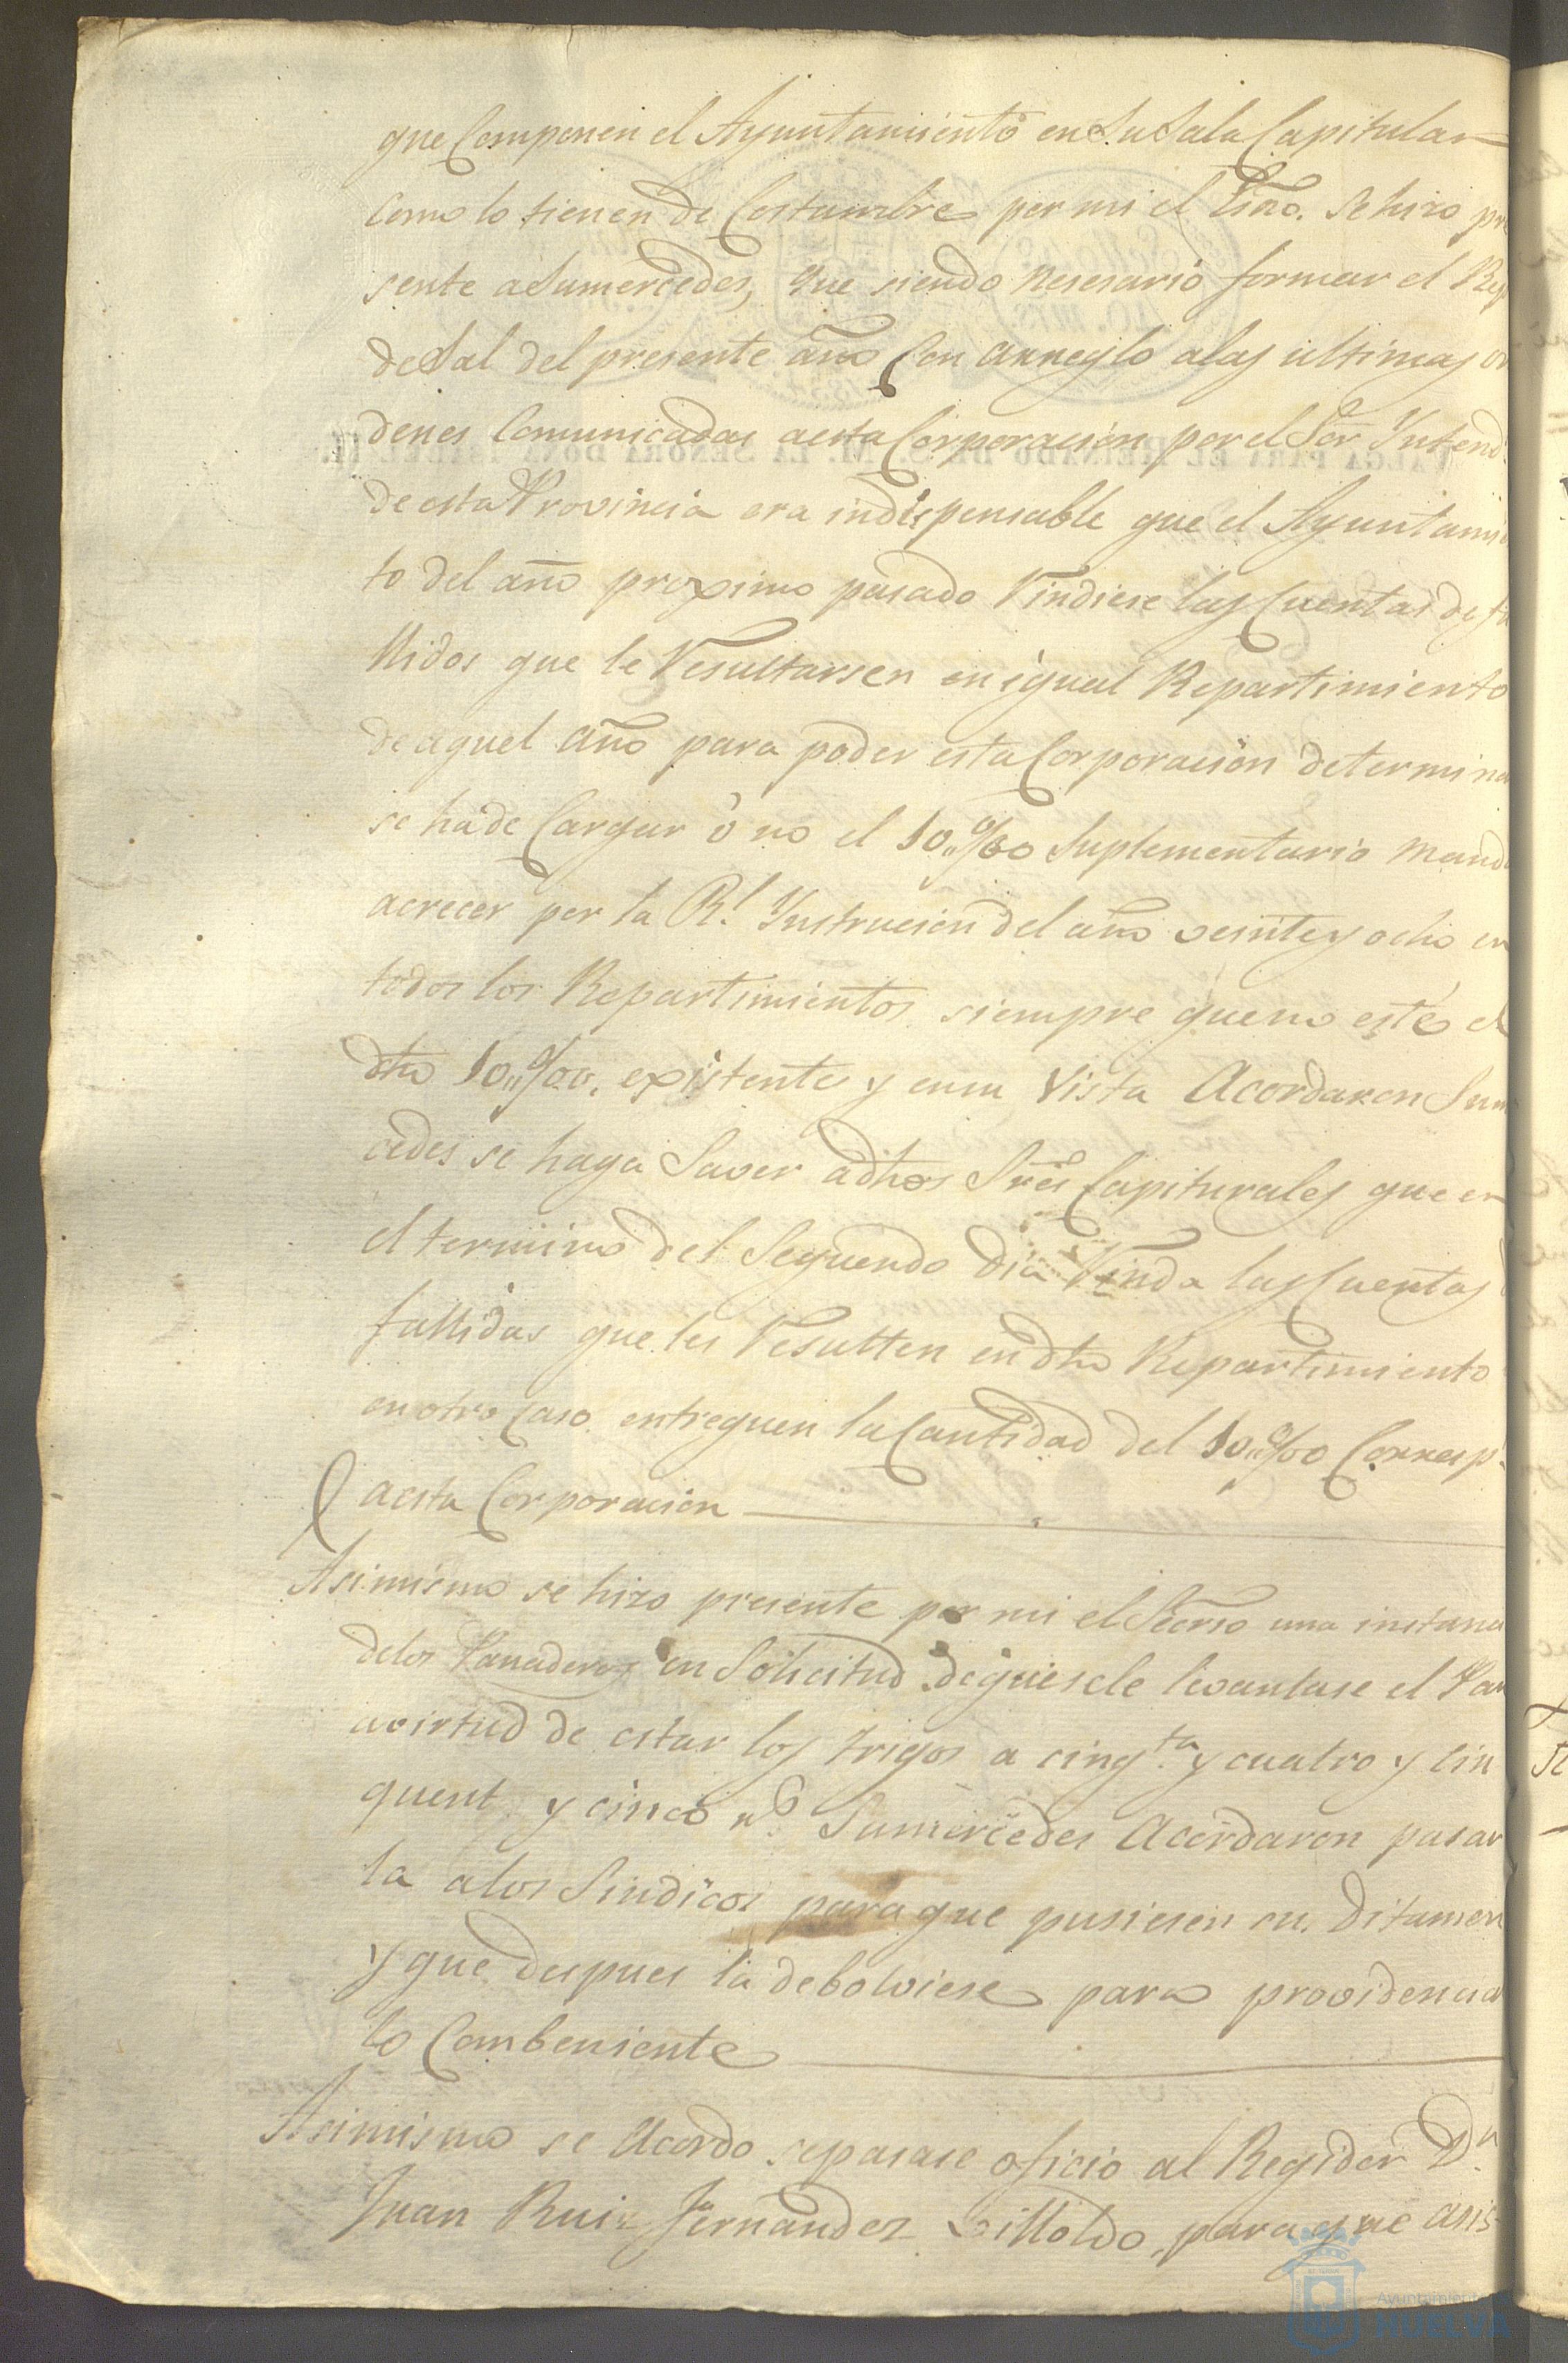 que Componen el Ayuntamiento en Su Sala Capitular
como lo tienen de Costumbre por mi el Esno. Se hizo pre
sente a Sumercedes, que siendo nesesario formar el Rep
de Sal del presente año Con arreglo alas ultimas or
denes Comunicadas aesta Corporacion por el Sor Yntend.
de esta Provincia era indispensable que el Ayuntamie
to del año proximo pasado Rindiese las Cuentas de fa
llidos que le Resultarsen en igual Repartimiento
de aquel año para poder esta Corporacion determina
se hade Cargar ó no el 10 %00 Suplementario mand
acrecer por la Rl. Ynstrucion del año veinte y ocho en
todos los Repartimientos siempre queno esté el
dho 10 %00. existente y ensu Vista Acordaron Sum
cedes se haga Saver adhos Sres Capiturales que en
el termino del Seguendo Dia Rinda las Cuentas
fallidas que les Resulten en dho Repartimiento
en otro Caso entreguen la Cantidad del 10 %00 Corresp.
aesta Corporacion
Asimismo se hizo presente por mi el Secrio una instanc
delos Panaderos en Solicitud de quesele levantase el Pan
avirtud de estar los trigos a cinqta. y cuatro y cin
quent. y cinco rs. Sumercedes Acordaron pasar
la alos Sindicos para que pusiesen su Ditamen
y que despues la debolviese para providencia
lo Combeniente
Asimismo se Acordo sepasase oficio al Regidor Dn.
Juan Ruiz Fernandez para que asis
VALGA PARA EL REINADO DE S. M. LA SEÑORA DOÑA ISABEL II.
Ayuntamiento
HUELVA